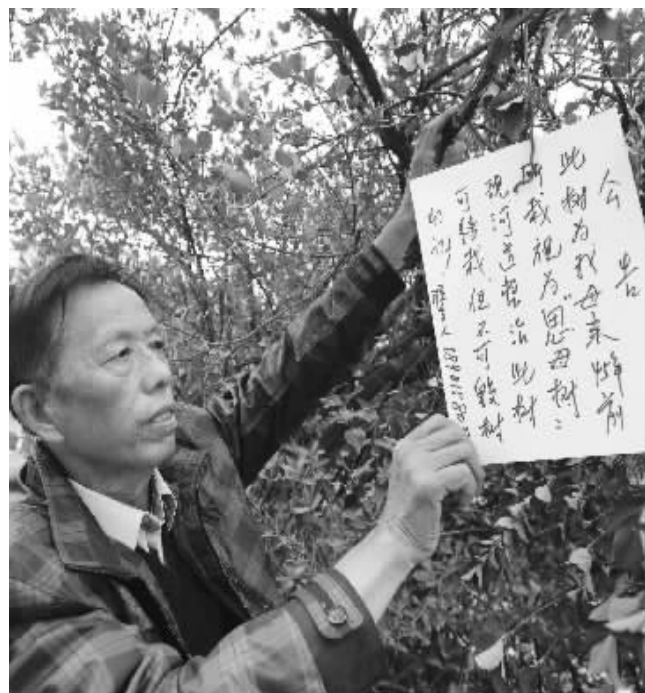 公告
此树为我母亲45年前
所栽视为“思母树”:
现河道整治此树
可移栽但不可毁树